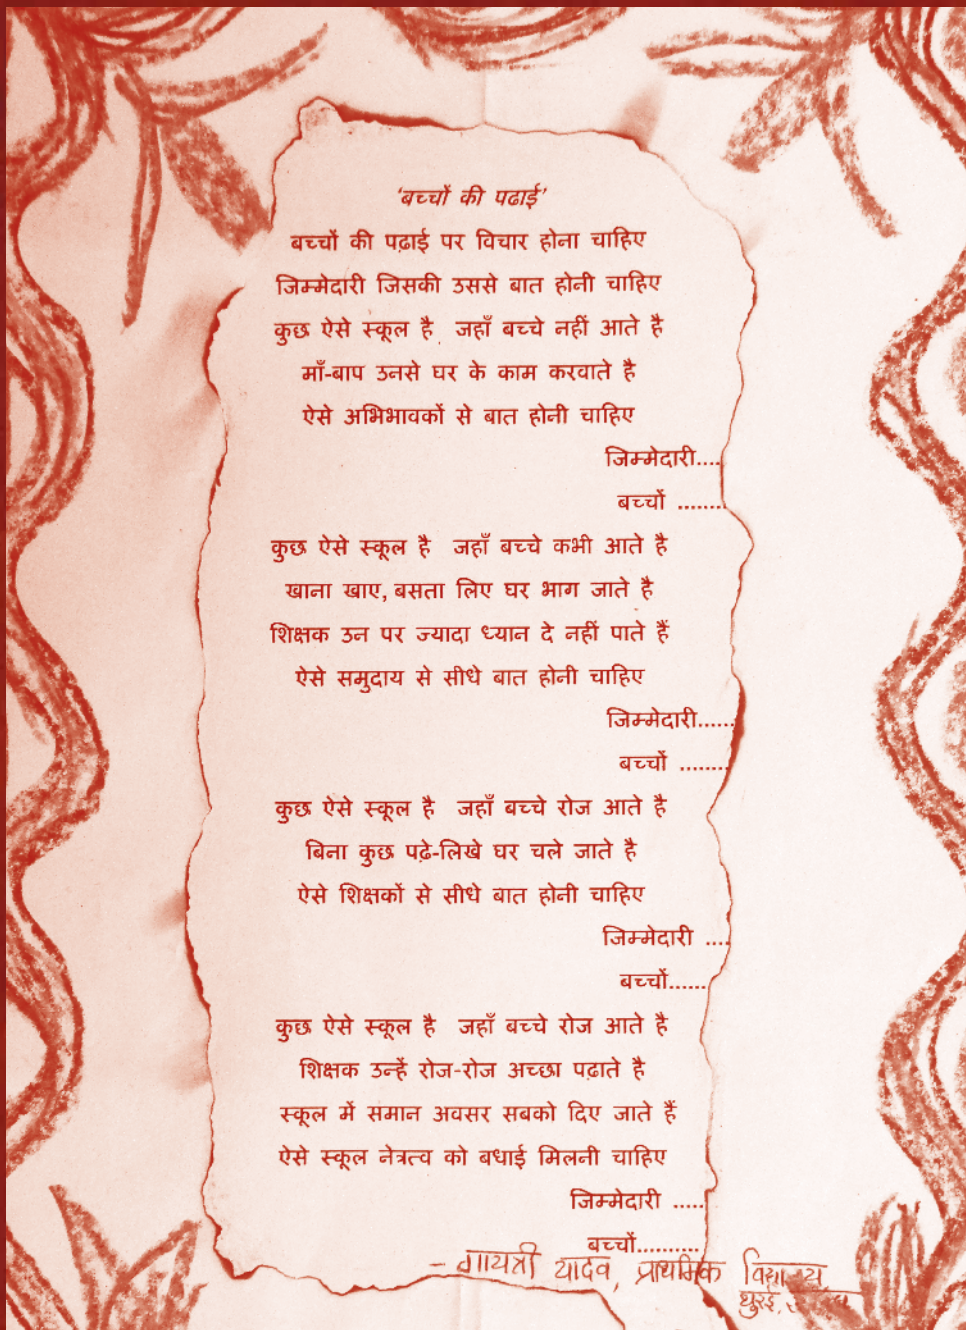 ‘बच्चों की पढाई’
बच्चों की पढ़ाई पर विचार होना चाहिए
जिम्मेदारी जिसकी उससे बात होनी चाहिए
कुछ ऐसे स्कूल है जहाँ बच्चे नहीं आते है
माँ-बाप उनसे घर के काम करवाते है
ऐसे अभिभावकों से बात होनी चाहिए
जिम्मेदारी....
बच्चों ........
कुछ ऐसे स्कूल है जहाँ बच्चे कभी आते है
खाना खाए, बसता लिए घर भाग जाते है
शिक्षक उन पर ज्यादा ध्यान दे नहीं पाते हैं
ऐसे समुदाय से सीधे बात होनी चाहिए
जिम्मेदारी......
बच्चों ........
कुछ ऐसे स्कूल है जहाँ बच्चे रोज आते है
बिना कुछ पढ़े-लिखे घर चले जाते है
ऐसे शिक्षकों से सीधे बात होनी चाहिए
जिम्मेदारी ....
बच्चों......
कुछ ऐसे स्कूल है जहाँ बच्चे रोज आते है
शिक्षक उन्हें रोज-रोज अच्छा पढ़ाते है
स्कूल में समान अवसर सबको दिए जाते हैं
ऐसे स्कूल नेत्रत्व को बधाई मिलनी चाहिए
जिम्मेदारी .....
बच्चों..........
- गायत्री यादव, प्राथमिक विद्यालय